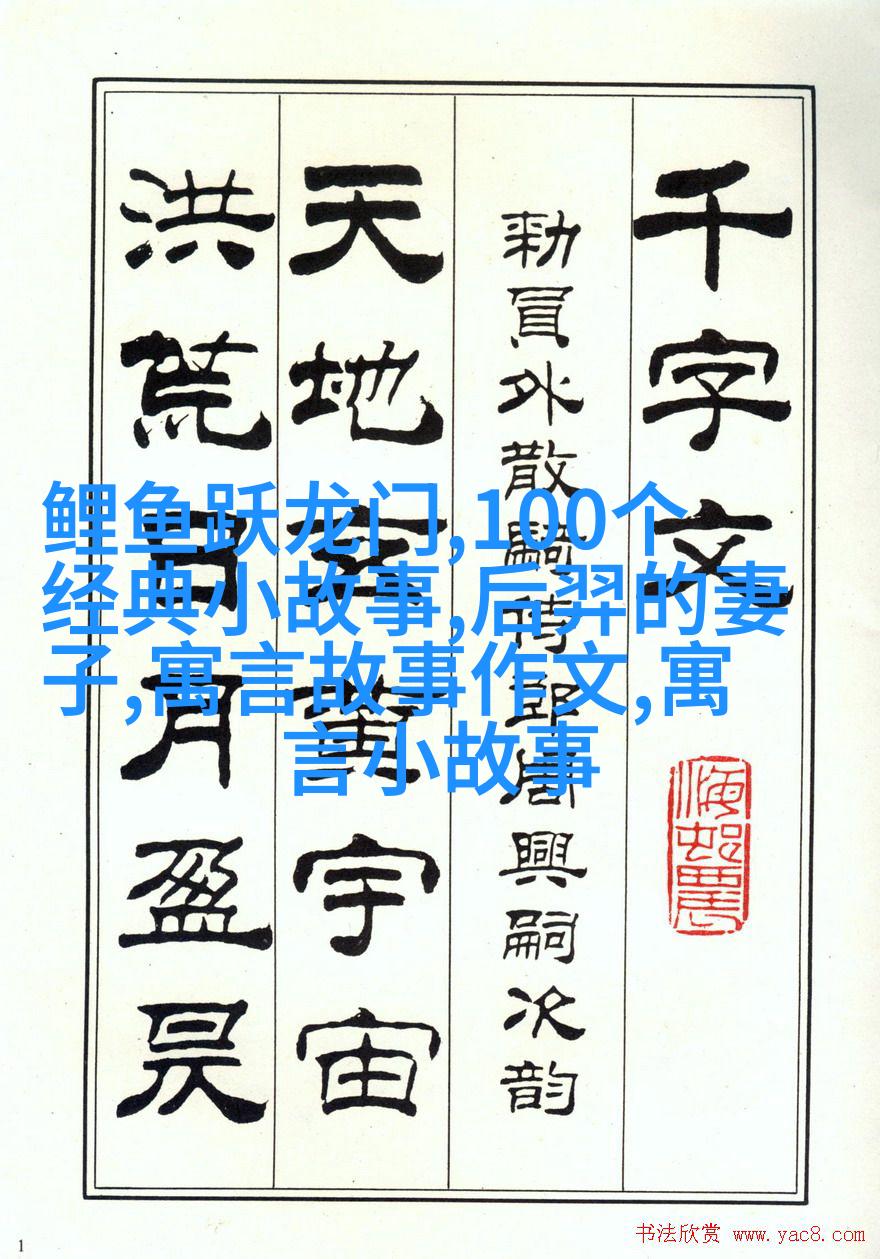 千字文
勑員外散騎侍郎周興嗣次韵
天地玄黃宇宙
洪荒日月盈昃
鲤鱼跃龙门,100个
经典小故事,后羿的妻
子,寓言故事作文,寓
言小故事
1
书法欣赏 www.yac8.com